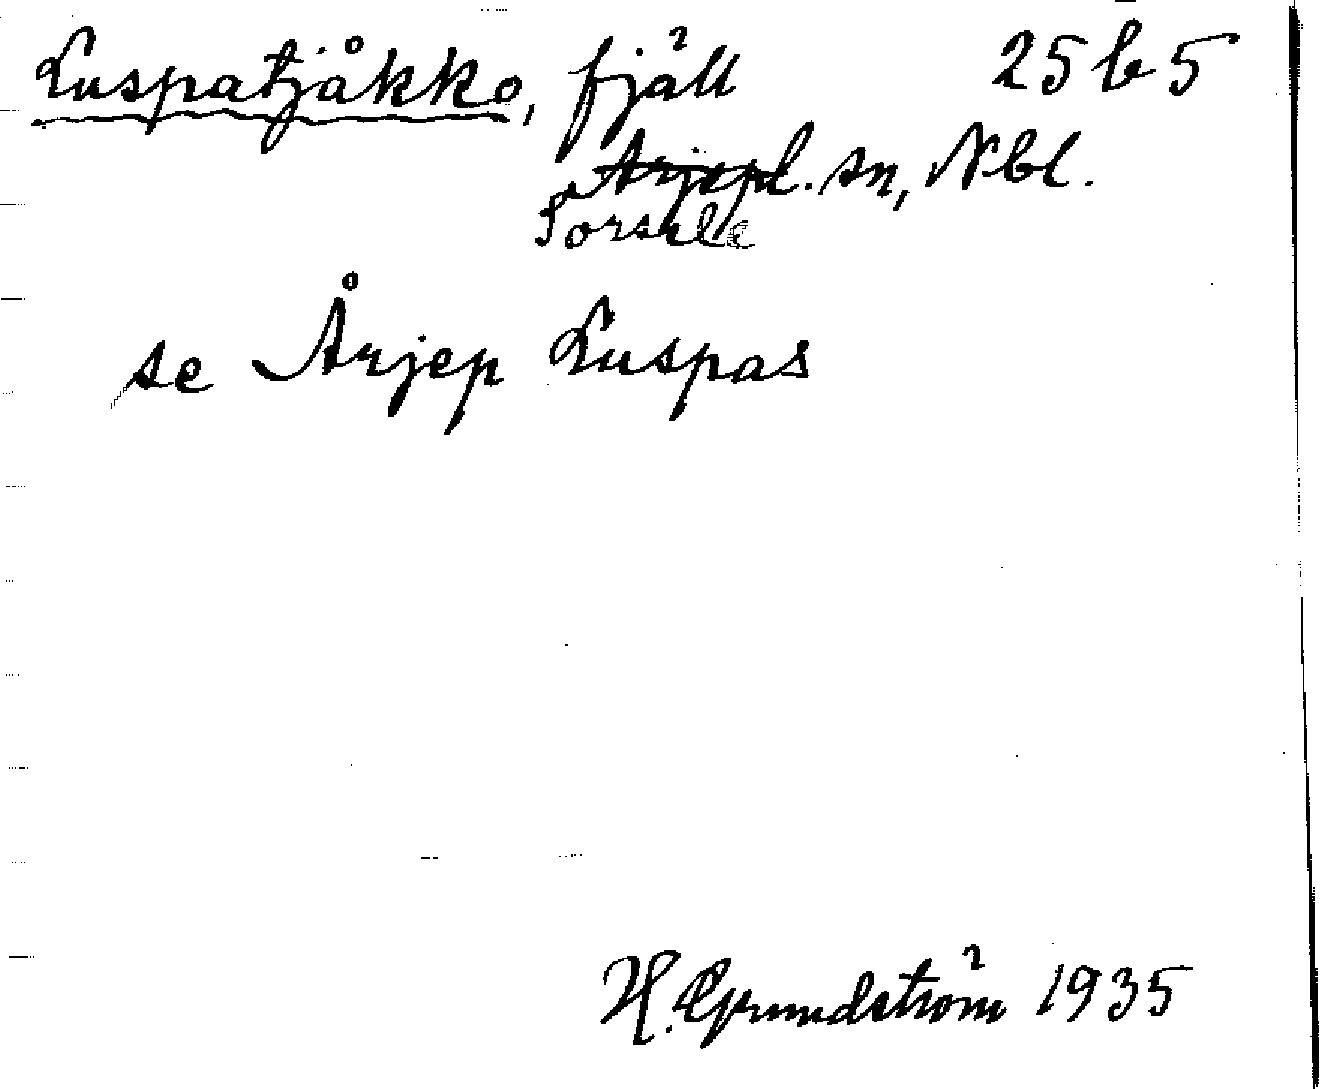 Luspatjåkko, fjäll 25 b 5
Arjepl. sn, Nbl.
Sorsele
se Årjep Luspas
H. Grundström 1935